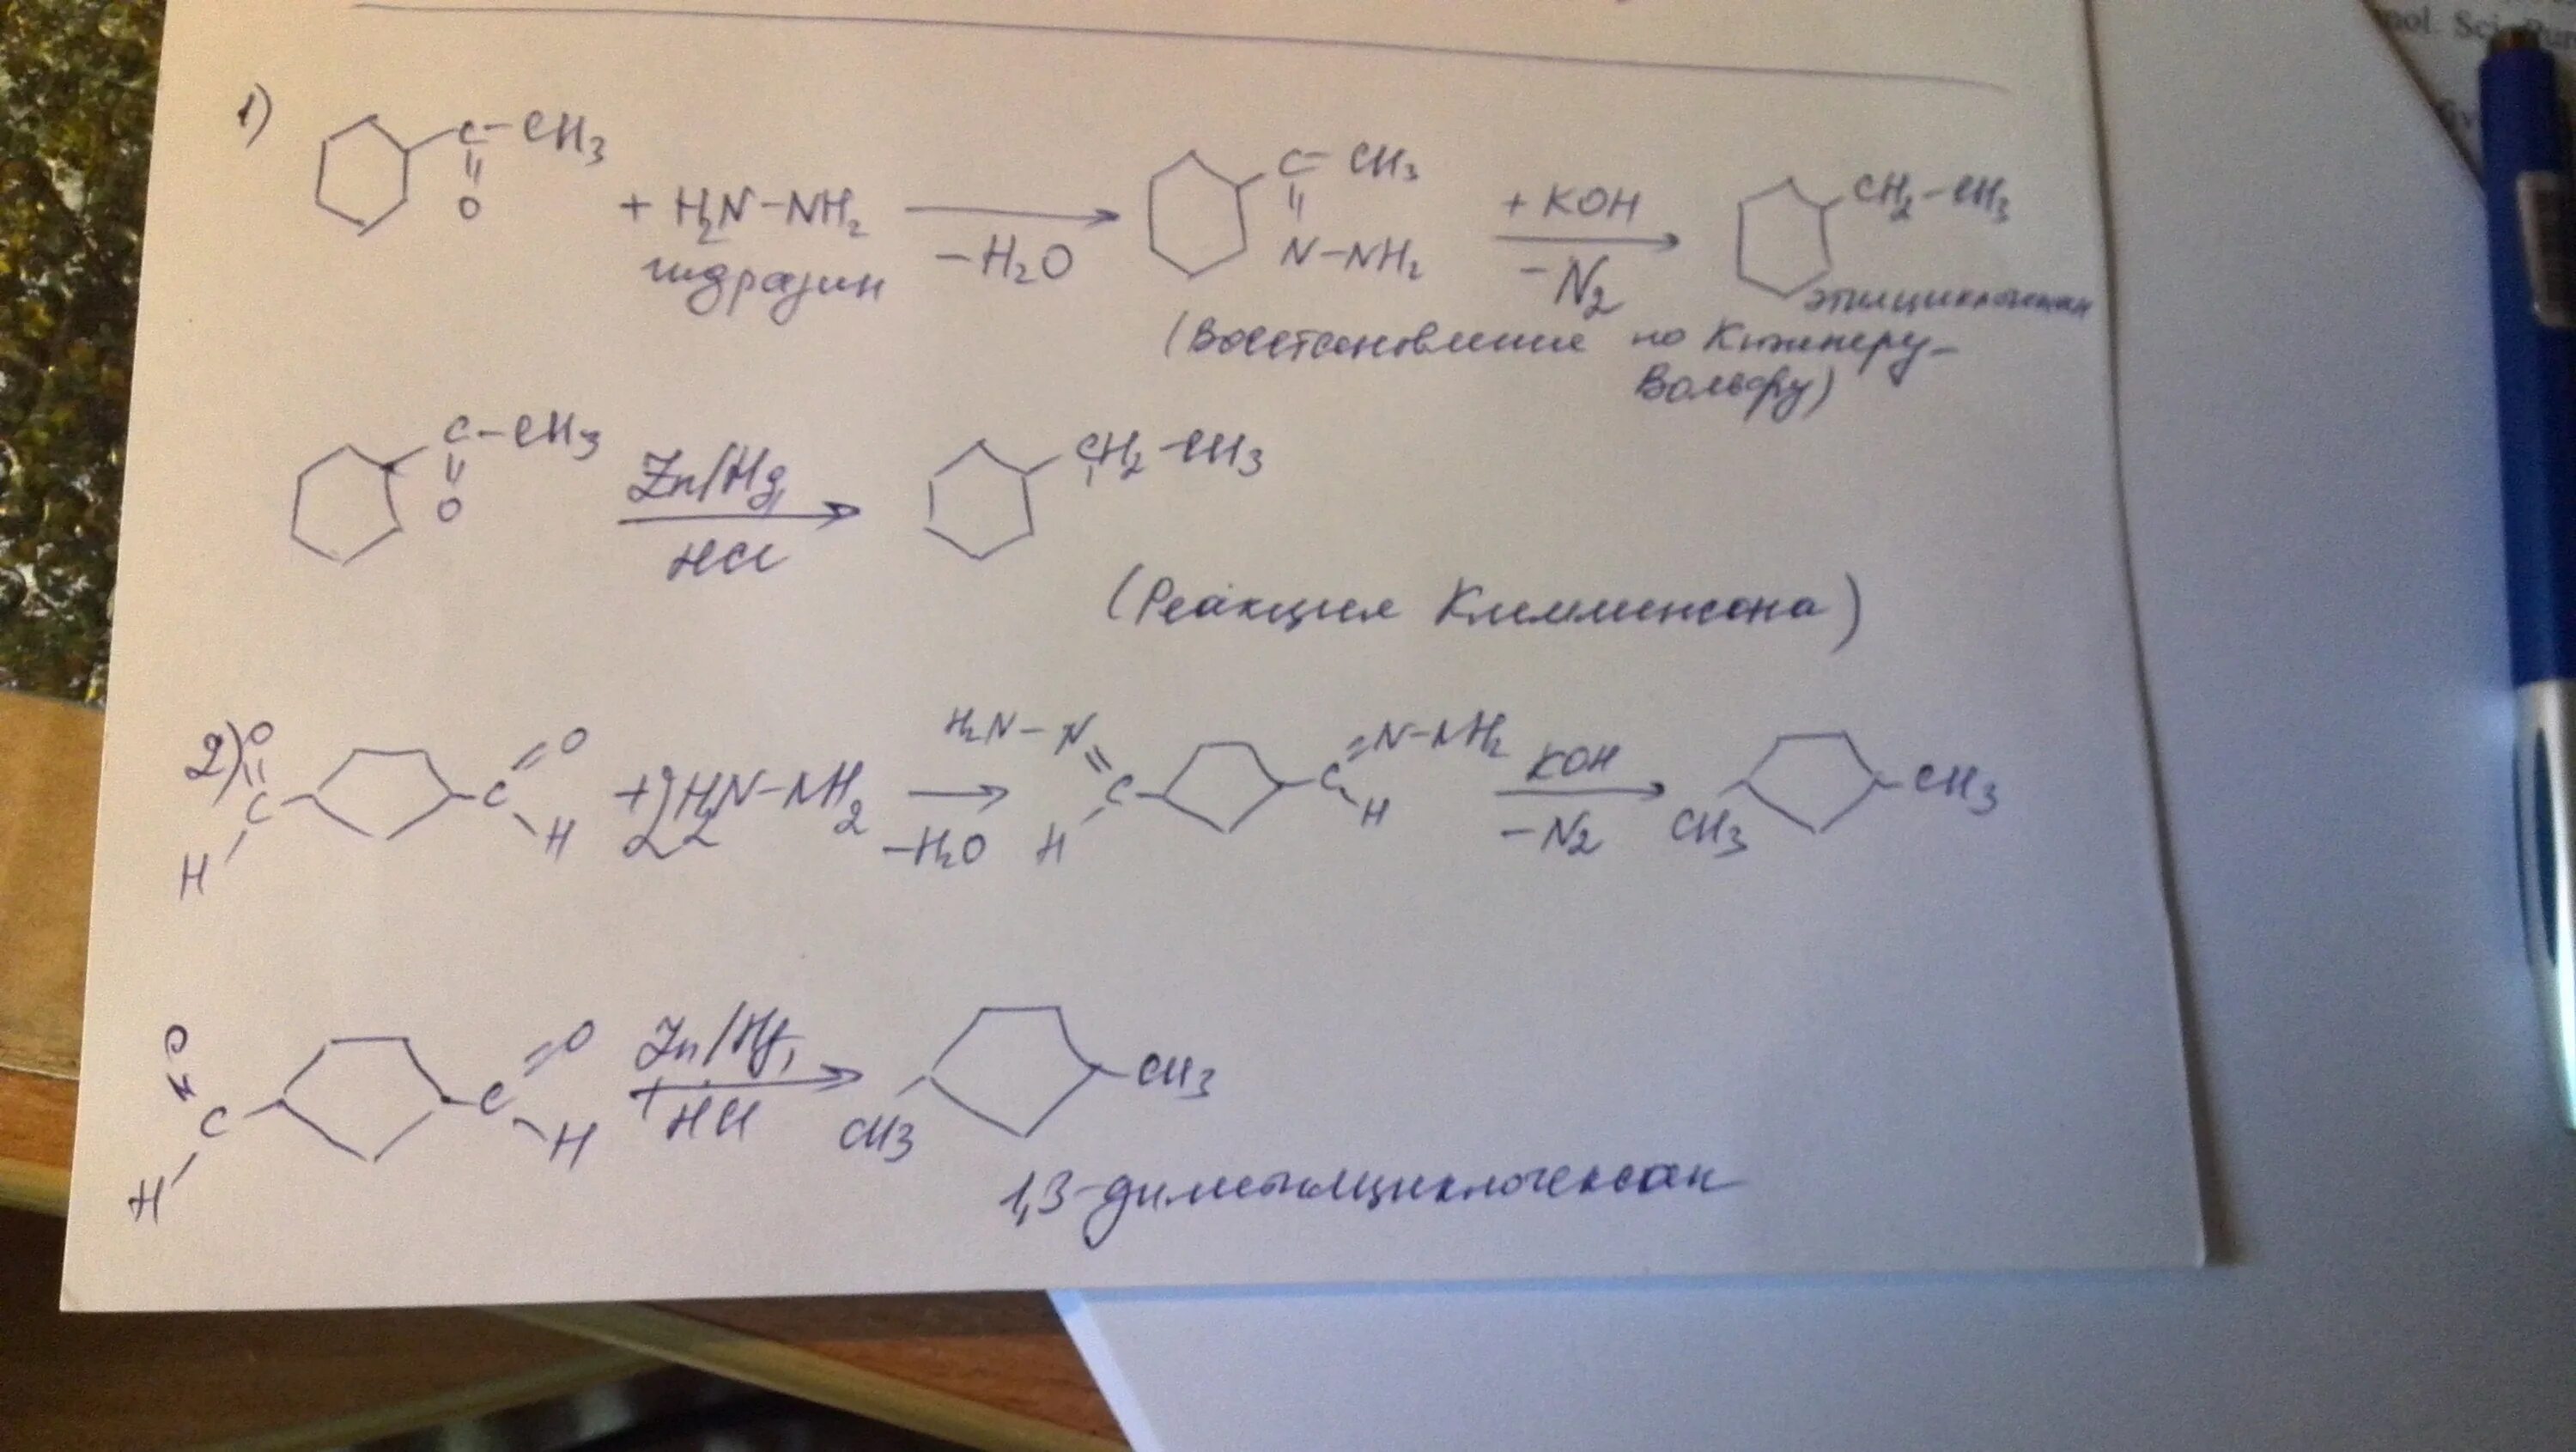 1)
C-CH3
O
+ H2N-NH2
гидразин
-H2O
C- CH3
N-NH2
+ KOH
-N2
CH2-CH3
этилциклогексан
(Восстановление по Кижнеру-
Вольфу)
C-CH3
O
Zn/Hg,
HCl
CH2-CH3
(Реакция Клемменсона)
2)
O
C
H
C=O
H
+2H2N-NH2
-H2O
H2N-N
C
H
C=N-NH2
H
KOH
-N2
CH3
CH3
O
C
H
C=O
H
Zn/Hg,
HCl
CH3
CH3
1,3-диметилциклогексан